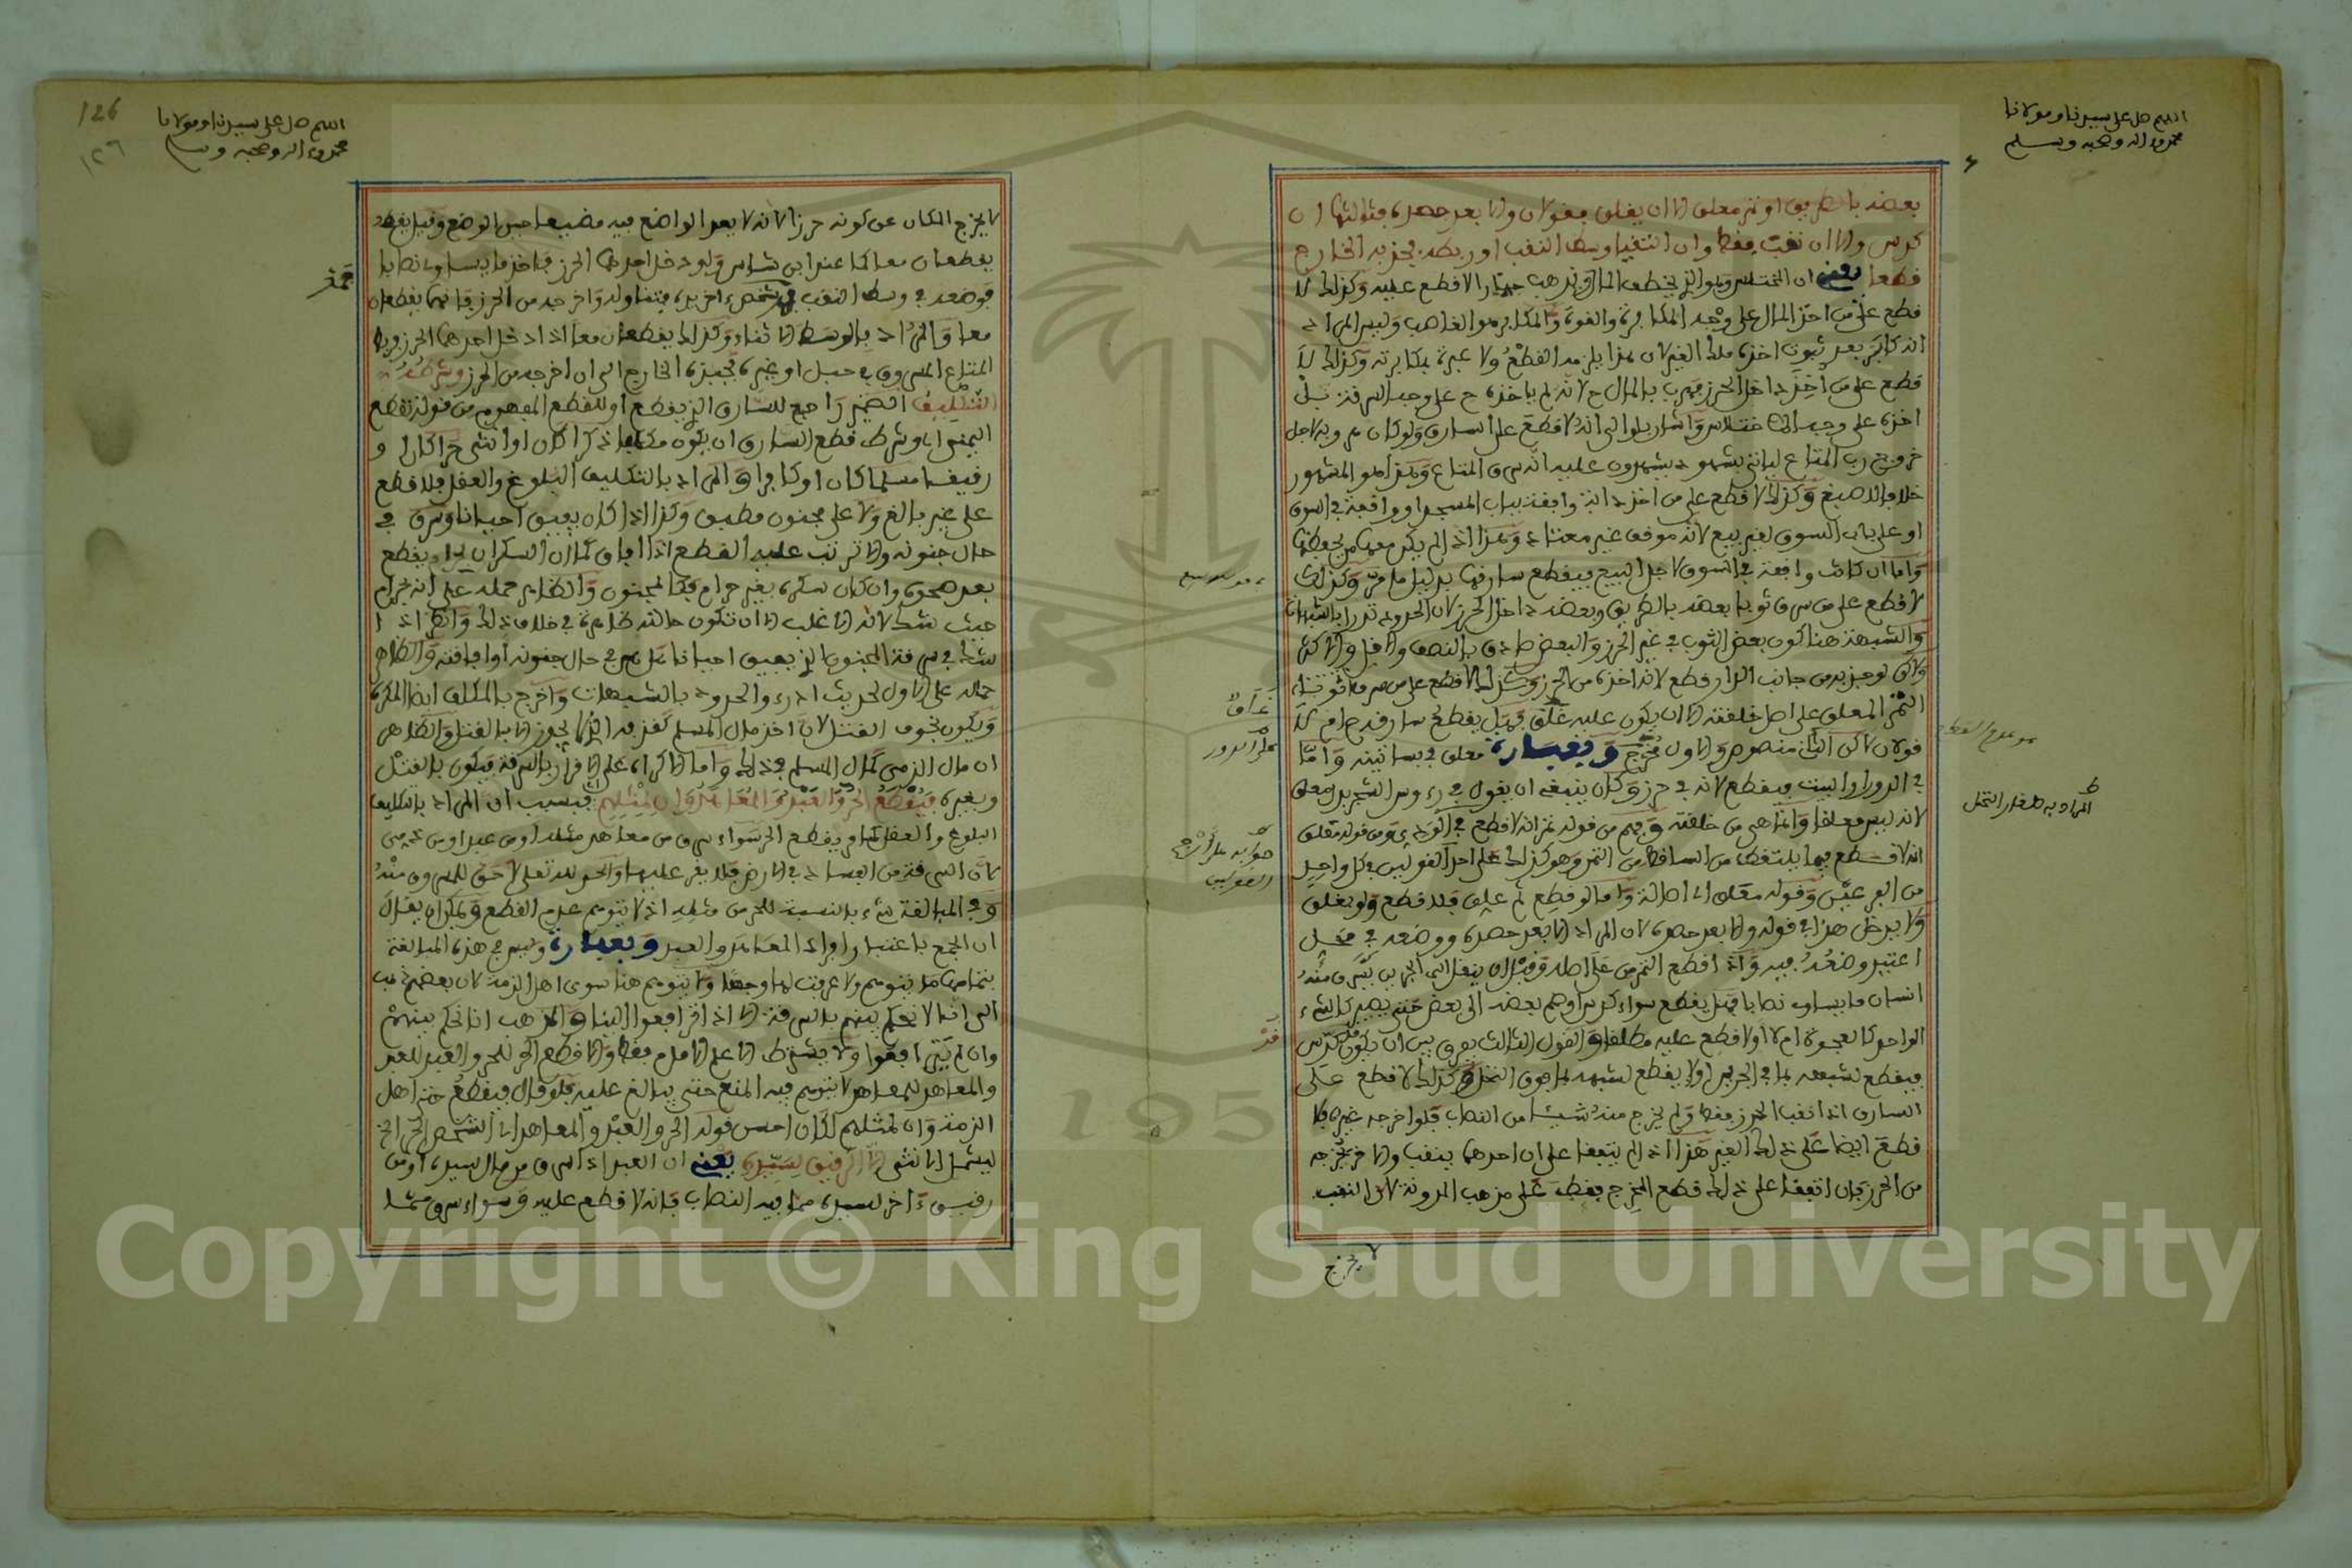 اللهم صل على سيدنا ومولانا
محمد وءاله وصحبه وسلم
بعضه بالطريق او تمر معلق الا ان يغلق فقولان والا بعد حصده فثالثها ان
كدس ولا ان نقب فقط وان التقيا وسط النقب او ربطه فجذبه الخارج
قطعا يعني ان المختلس وهو الذي يخطف المال ويذهب جهارا لا قطع عليه وكذلك لا
قطع على من اخذ المال على وجه المكابرة والقوة والمكابر هو الغاصب وليس المراد
انه كابر بعد ثبوت اخذه ملك الغير لان هذا يلزمه القطع ولا عبرة بمكابرته وكذلك لا
قطع على من اخذ داخل الحرز فهرب بالمال ح لانه لم ياخذه ح على وجه السرقة بل
اخذه على وجه الاختلاس واشار بلو الى انه لا قطع على السارق ولو كان هروبه لاجل
خروج رب المتاع لياتي بشهود يشهدون عليه انه سرق المتاع وهذا هو المشهور
خلافا لاصبغ وكذلك لا قطع على من اخذ دابة واقفة بباب المسجد او واقفة في السوق
او على باب السوق لغير بيع لانه موقف غير معتاد وهذا اذا لم يكن معها من يحفظها
واما ان كانت واقفة في السوق لاجل البيع فيقطع سارقها بدليل ما مر وكذلك
لا قطع على من سرق ثوبا بعضه بالطريق وبعضه داخل الحرز لان الحدود تدرا بالشبهات
والشبهة هنا كون بعض الثوب في غير الحرز والبعض صادق بالنصف والاقل والاكثر
ولاكن لو جذبه من جانب الدار قطع لانه اخذه من الحرز وكذلك لا قطع على من سرق
الثمر المعلق على اصل خلقته الا ان يكون عليه غلق فهل يقطع سارقه ح ام لا
قولان لاكن الثاني منصوص والاول مخرج وبعبارة معلق في بساتينه واما
في الدور او البيت فيقطع لانه في حرز وكان ينبغي ان يقول في رءوس الشجر بدل معلق
لانه ليس معلقا وانما هي من خلقته وفهم من قوله تمر انه لا قطع في الودي ومن قوله معلق
انه لا قطع فيما يلتقط من الساقط من الثمر وهو كذلك على احد القولين في كل واحد
من الفرعين وقوله معلق اي اصالة واما لو قطع ثم علق فلا قطع ولو بغلق
ولا يدخل هذا في قوله والا بعد حصده لان المراد الا بعد حصده ووضعه في محل
اعتيد وضعه فيه واذا قطع الثمر من على اصله وقبل ان ينقل الى الجرين سرق منه
انسان ما يساوي نصابا فهل يقطع سواء كدس اي ضم بعضه الى بعض حتى يصير كالشيء
الواحد كالعجوة ام لا او لا قطع عليه مطلقا والقول الثالث يفرق بين ان يكون كدس
فيقطع لشبهه بما في الجرين او لا يقطع لشبهه بما فوق النخل وكذلك لا قطع على
السارق اذا نقب الحرز فقط ولم يخرج منه شيئا من النصاب فلو اخرجه غيره فلا
قطع ايضا على ذلك الغير هذا اذا لم يتفقا على ان احدهما ينقب والاخر يخرجه
من الحرز فان اتفقا على ذلك قطع المخرج فقط على مذهب المدونة لان النقب
لا يخرج
المراد به طلع النخل
126
١٢٦
اللهم صل على سيدنا ومولانا
محمد وءاله وصحبه وسلم
لا يخرج المكان عن كونه حرزا لانه لا يعد الواضع فيه مضيعا حين الوضع وقيل يقطعا
يقطعان معا كما عند ابن شاس ولو دخل احدهما الحرز فاخذ ما يساوي نصابا
فوضعه في وسط النقب فمد شخص ءاخر يده فتناوله واخرجه من الحرز فانهما يقطعان
معا والمراد بالوسط الاثناء وكذلك يقطعان معا اذا دخل احدهما الحرز وربط
المتاع المسروق في حبل او غيره فجبذه الخارج الى ان اخرجه من الحرز وشرطه
التكليف الضمير راجع للسارق الذي يقطع او للقطع المفهوم من قوله تقطع
اليمنى اي وشرط قطع السارق ان يكون مكلفا ذكرا كان او انثى حرا كان او
رقيقا مسلما كان او كافرا والمراد بالتكليف البلوغ والعقل فلا قطع
على غير بالغ ولا على مجنون مطبق وكذا اذا كان يفيق احيانا وسرق في
حال جنونه والا ترتب عليه القطع اذا افاق كما ان السكران بحرام يقطع
بعد صحوه وان كان سكره بغير حرام فكالمجنون والظاهر حمله على انه بحرام
حيث شك لانه الاغلب الا ان تكون حالته ظاهرة في خلاف ذلك وانظر اذا
شك في سرقة المجنون الذي يفيق احيانا هل هي في حال جنونه او افاقته والظاهر
حمله على الاول لحديث ادرءوا الحدود بالشبهات واخرج بالمكلف ايضا المكره
ويكون بخوف القتل لان اخذ مال المسلم كقذفه الذي لا يجوز الا بالقتل والظاهر
ان مال الذمي كمال المسلم في ذلك واما الاكراه على الاقرار بالسرقة فيكون بالقتل
وبغيره فيقطع الحر والعبد والمعاهد وان لمثلهم فبسبب ان المراد بالتكليف
البلوغ والعقل كما مر يقطع الحر سواء سرق من معاهد مثله او من عبد او من ذمي
لان السرقة من الفساد في الارض فلا يقر عليها والحد لله تعالى لا حق للمسروق منه
وفي المبالغة شيء بالنسبة للحر من مثله اذ لا يتوهم عدم القطع ويمكن ان يقال
ان الجمع باعتبار افراد المعاهد والعبد وبعبارة وليس في هذه المبالغة
بتمامها ما يتوهم ولا عرفت لها وجها ولا يتوهم هنا سوى اهل الذمة لان بعضهم ذهب
الى انا لا نحكم بينهم بالسرقة الا اذا ترافعوا الينا والمذهب انا نحكم بينهم
وان لم يترافعوا ولا يشترط الا علم الامام فقط والا قطع الحر للحر والعبد للعبد
والمعاهد للمعاهد لا يتوهم فيه المنع حتى يبالغ عليه فلو قال فيقطع حتى اهل
الذمة وان لمثلهم لكان احسن قوله الحر والعبد والمعاهد اي الشخص الحر الخ
ليشمل الانثى الا الرقيق لسيده يعني ان العبد اذا سرق من مال سيده او من
رقيق ءاخر لسيده مما فيه النصاب فانه لا قطع عليه وسواء سرق مما
Copyright © King Saud University
195